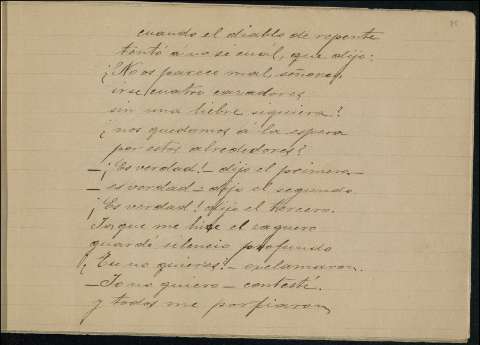 cuando el diablo de repente
tentó á no sé cuál, que dijo:
¿No os parece mal, señores,
irse cuatro cazadores
sin una liebre siquiera?
¿nos quedamos á la espera
por estos alrededores?
—¡Es verdad!— dijo el primero—
—es verdad— dijo el segundo.
¡Es verdad! dijo el tercero.
Yo que me hice el zaguero
guardé silencio profundo
¿Tu no quieres?— exclamaron.
—Yo no quiero— contesté.
y todos me porfiaron